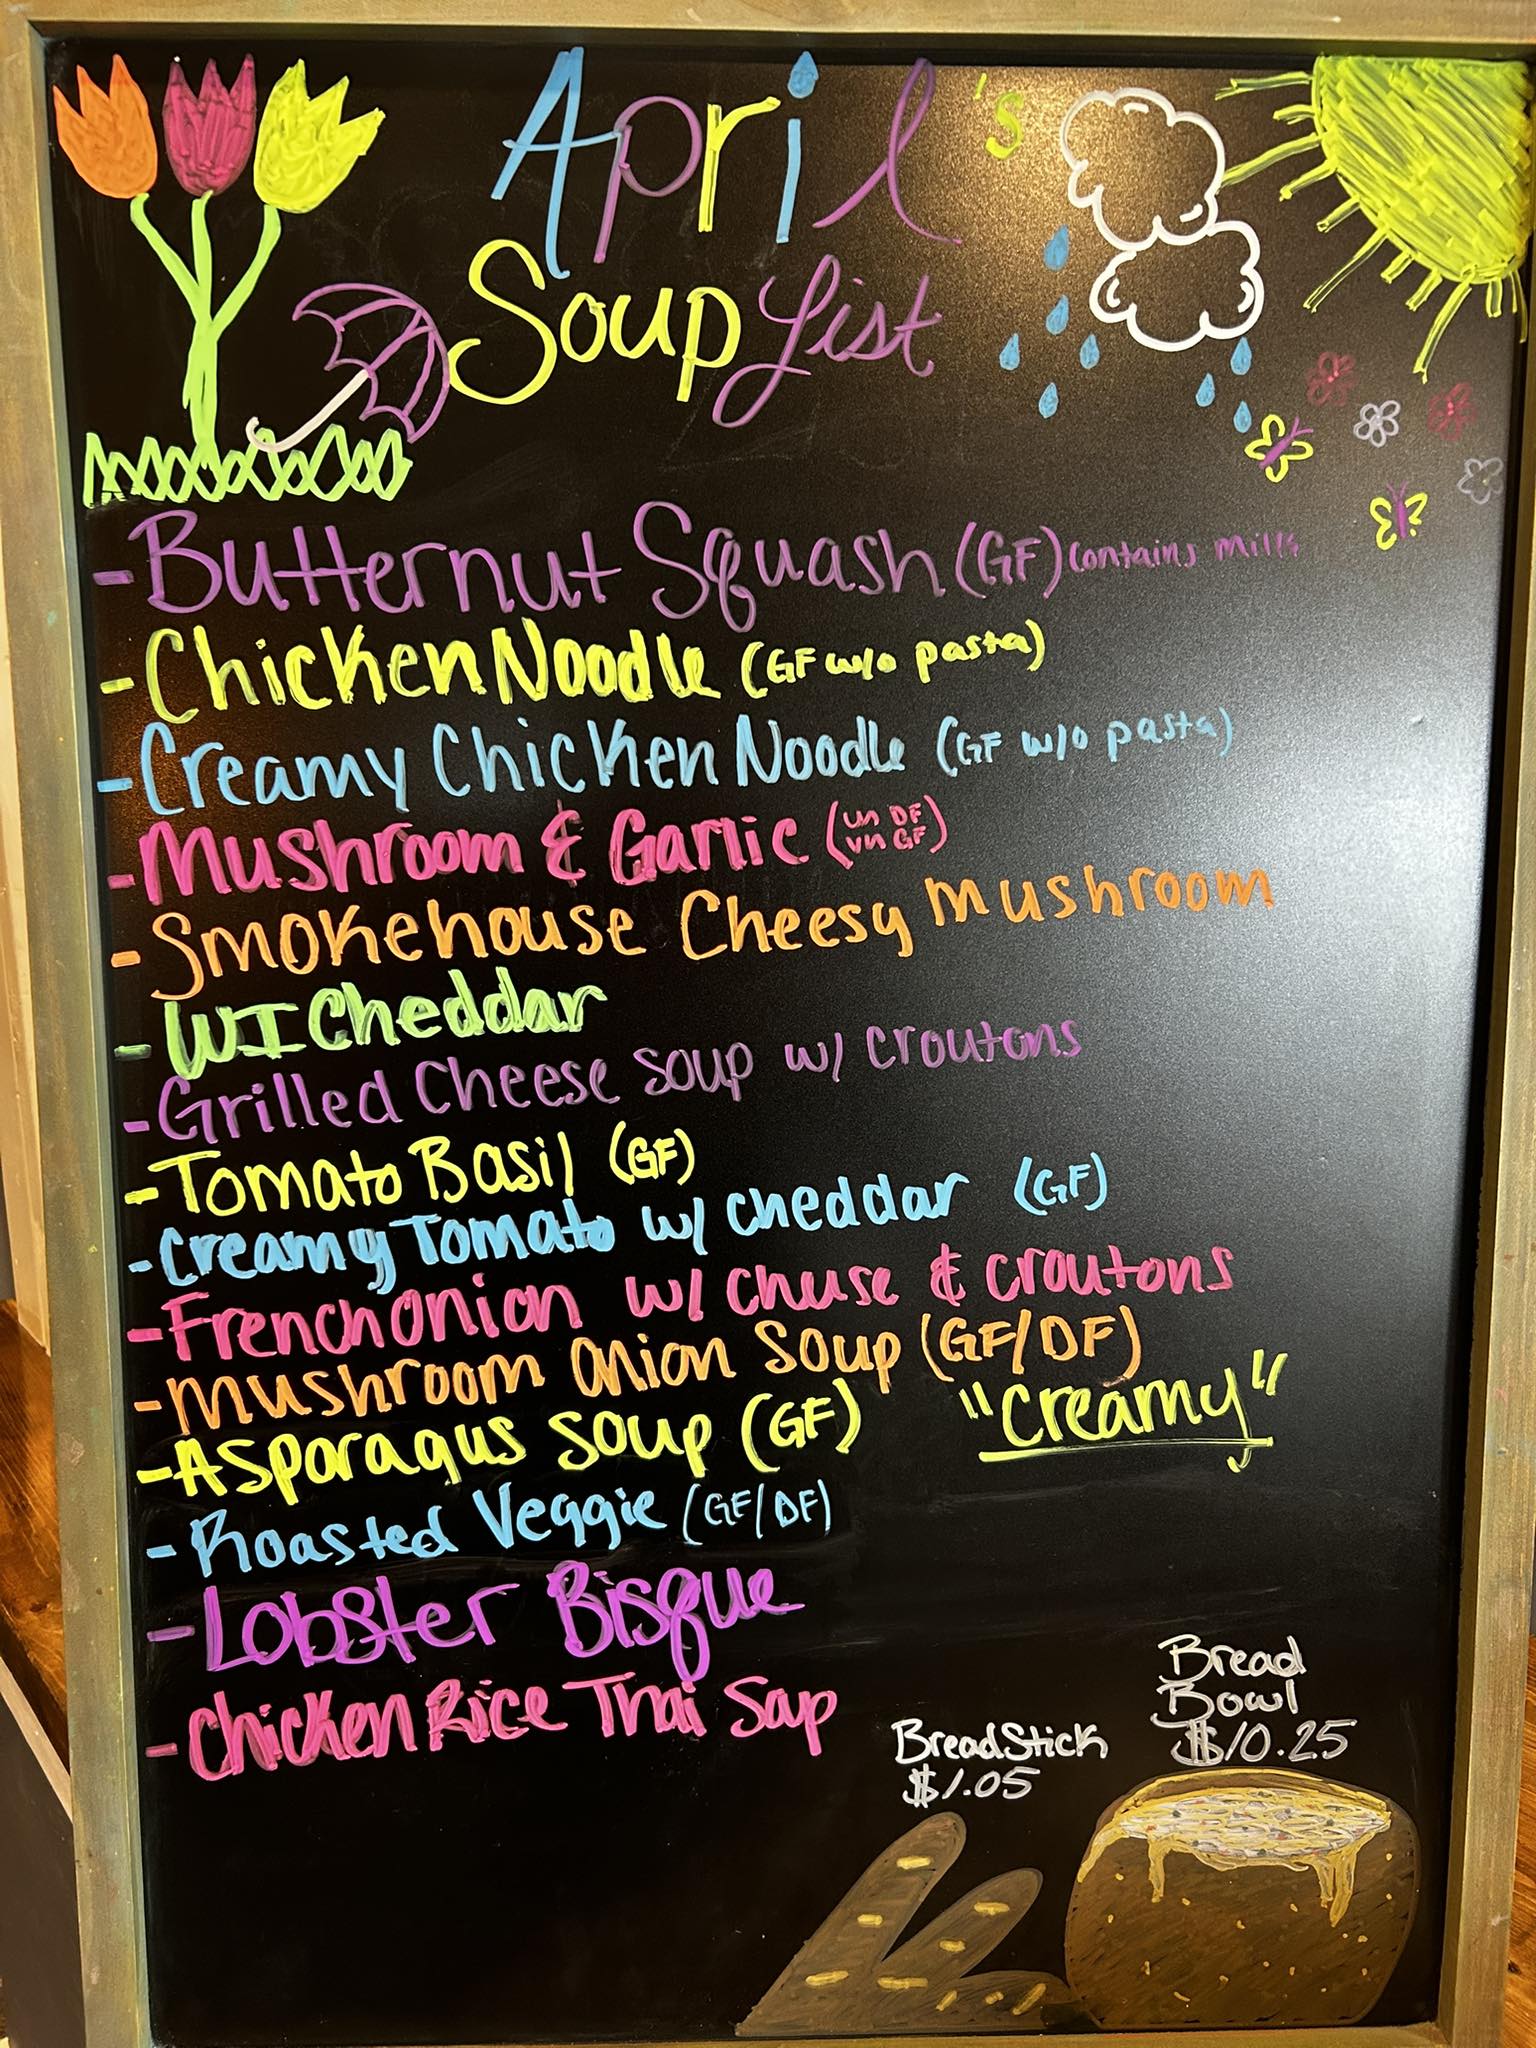 April's
Soup List
- Butternut Squash (GF) contains milk
- Chicken Noodle (GF w/o pasta)
- Creamy Chicken Noodle (GF w/o pasta)
- Mushroom & Garlic (un DF
vn GF)
- Smokehouse Cheesy Mushroom
- WI Cheddar
- Grilled Cheese soup w/ croutons
- Tomato Basil (GF)
- Creamy Tomato w/ cheddar (GF)
- French onion w/ cheese & croutons
- Mushroom Onion Soup (GF/DF)
- Asparagus Soup (GF) "Creamy"
- Roasted Veggie (GF/DF)
- Lobster Bisque
- Chicken Rice Thai Soup
BreadStick
$1.05
Bread
Bowl
$10.25